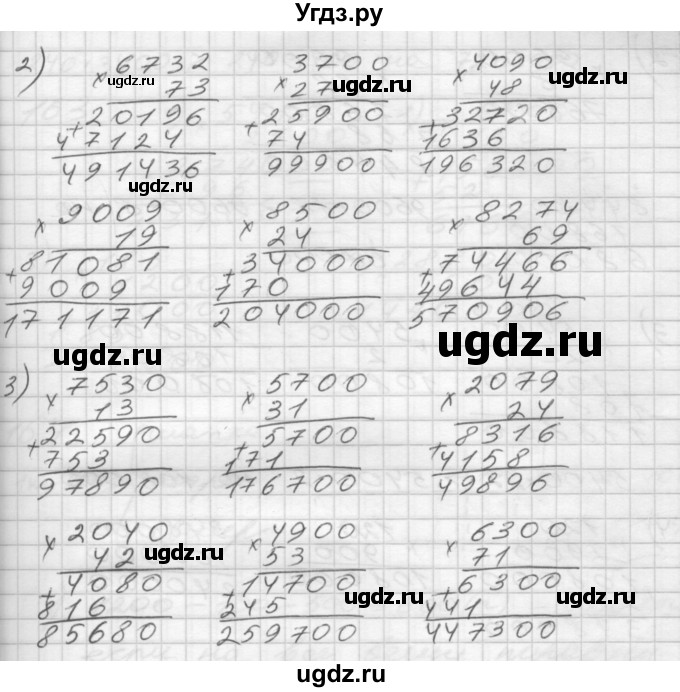 Угдз.ру
2) × 6732 × 3700 × 4090
ugdz.ru 73 27 ugdz.ru 48 ugdz.ru
+ 20196 + 25900 + 32720
47124 74 1636
491436 99900 196320
ugdz.ru
× 9009 × 8500 × 8274
19 24 69
+ 81081 + 34000 + 74466
9009 170 49644
171171 204000 570906
ugdz.ru ugdz.ru
3) × 7530 × 5700 × 2079
13 31 24
+ 22590 + 5700 + 8316
753 171 4158
97890 176700 49896
× 2040 × 4900 × 6300
42 ugdz.ru 53 71 ugdz.ru
+ 4080 + 14700 + 6300
816 245 441
85680 259700 447300
ugdz.ru ugdz.ru
ugdz.ru